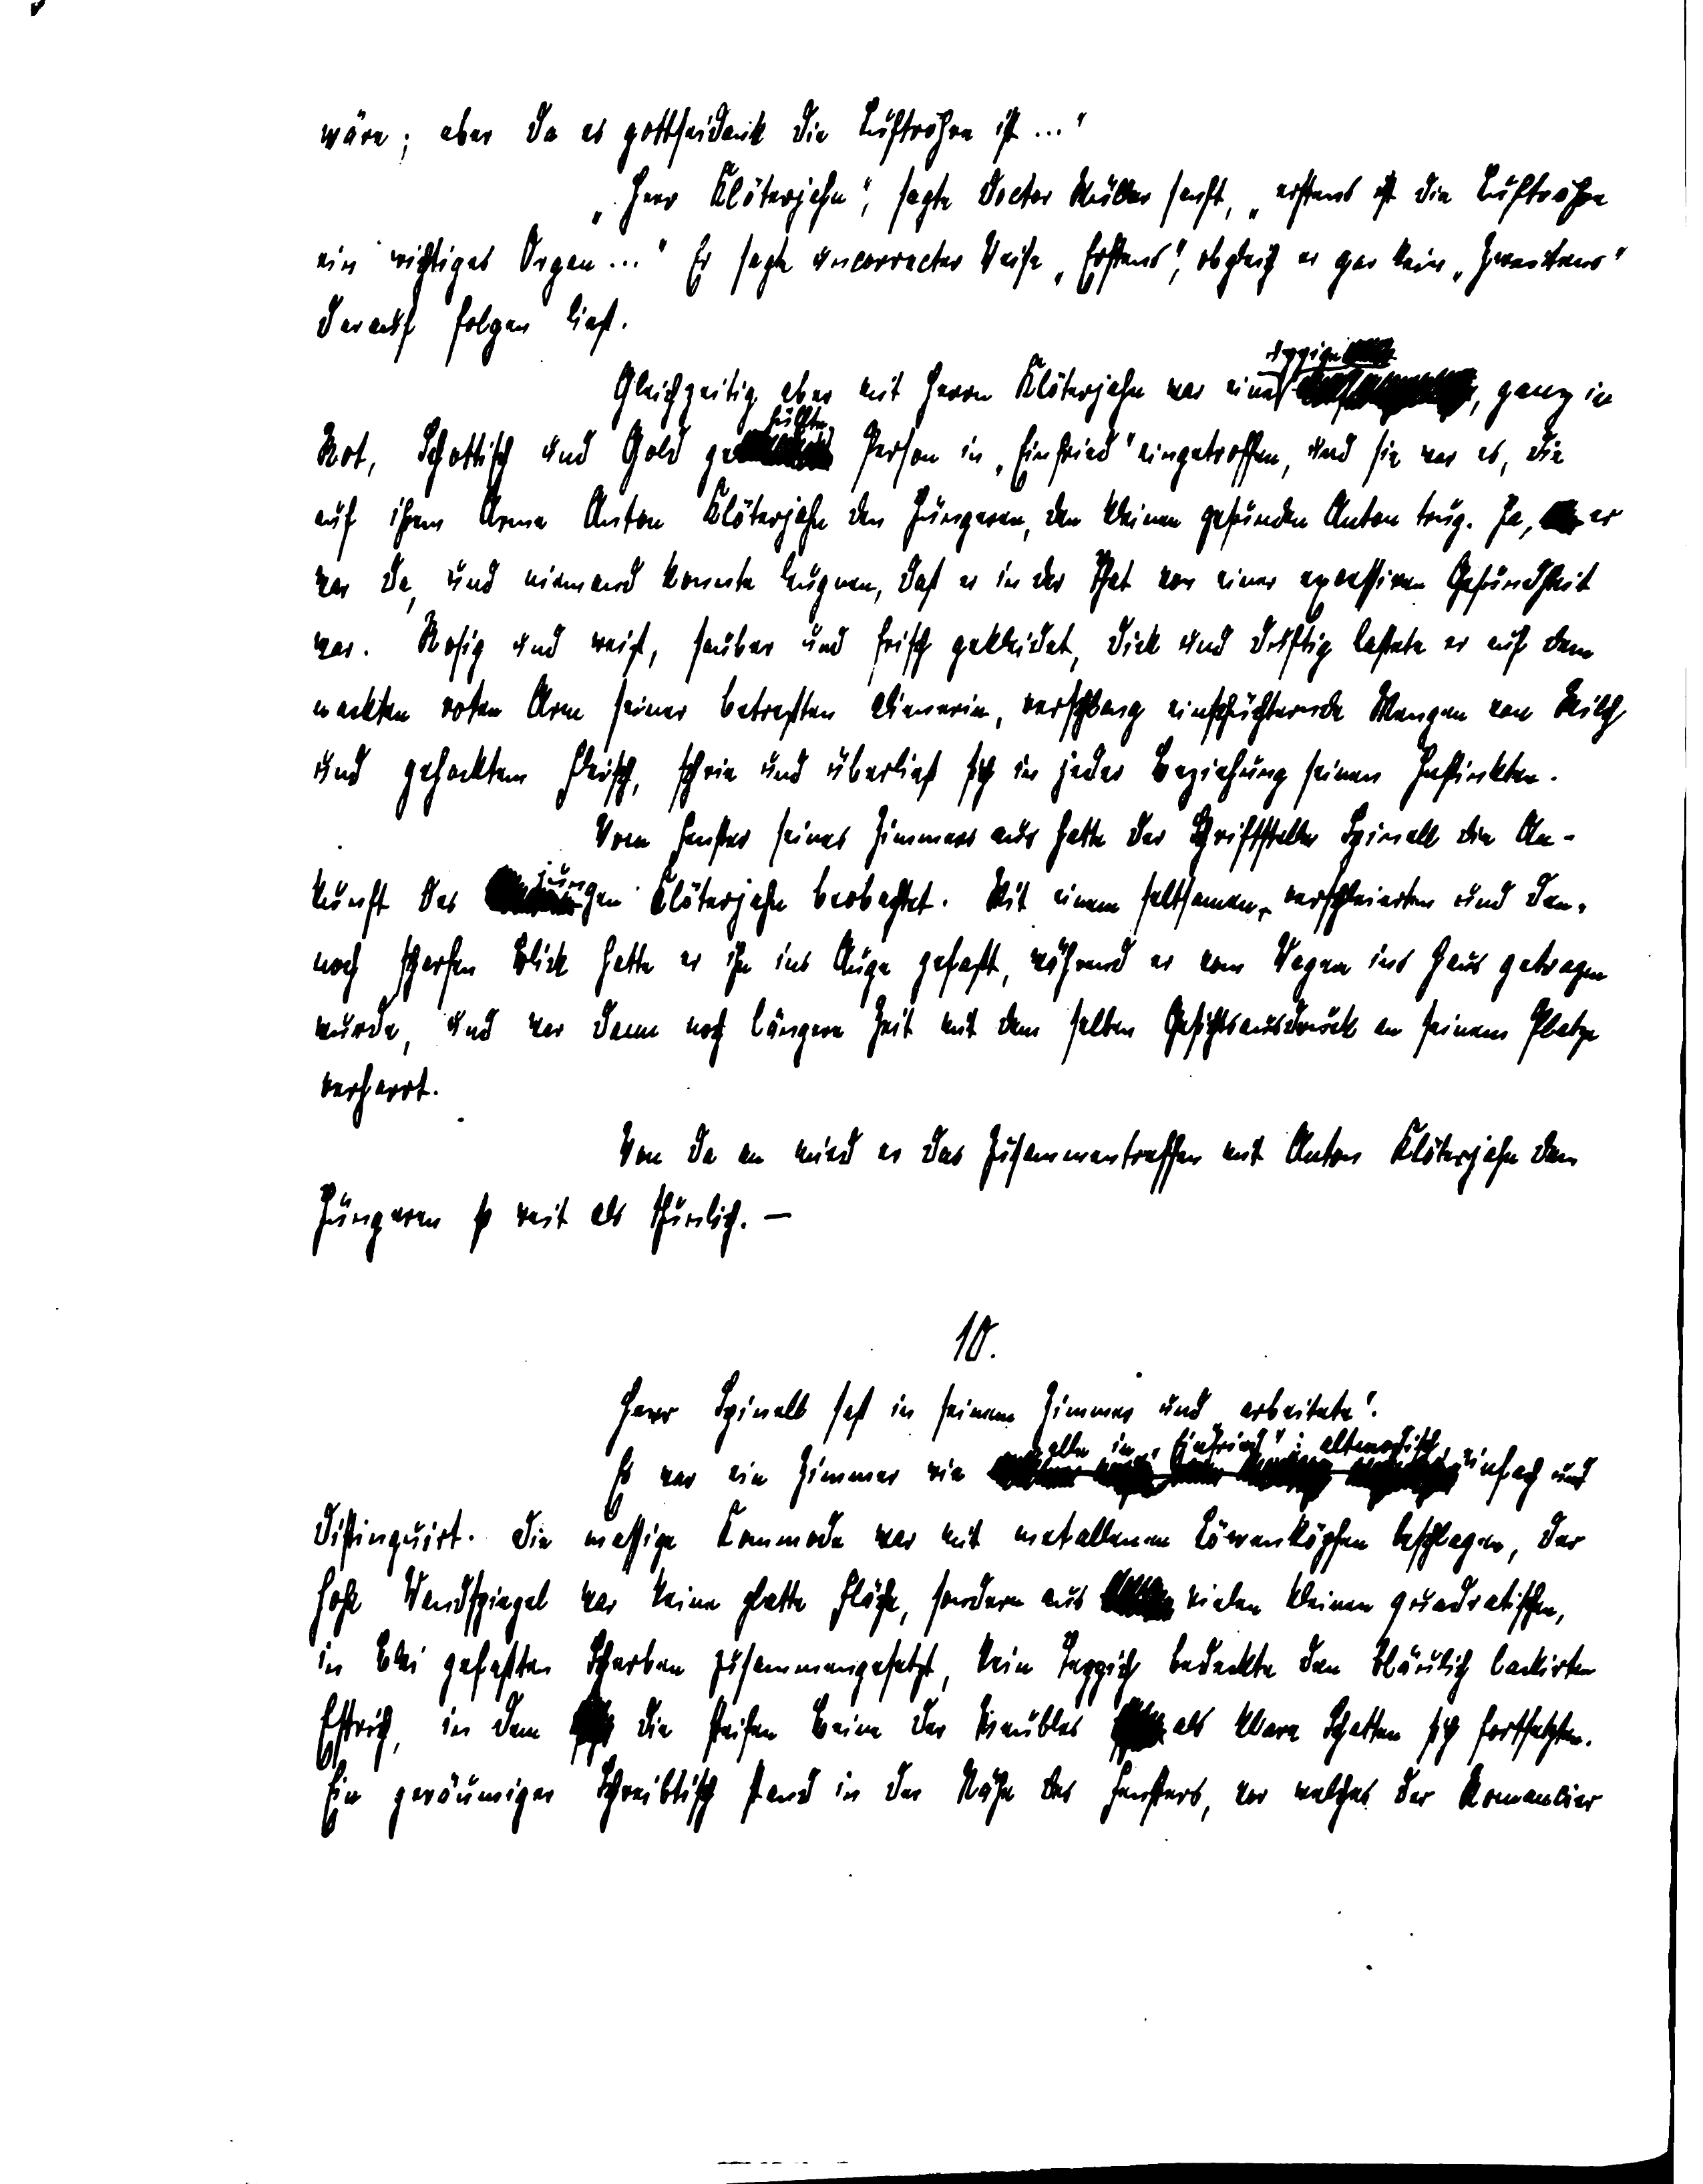 wäre; aber da es gottseidank die Luftröhre ist ..."
„Herr Klöterjahn", sagte Doctor Müller sanft, „erstens ist die Luftröhre
ein wichtiges Organ ..." Er sagte incorrecter Weise „Erstens", obgleich er gar kein „Zweitens"
darauf folgen ließ.
Gleichzeitig aber mit Herrn Klöterjahn war eine üppige, ganz in
Rot, Schottisch und Gold gehüllte Person in „Einfried" eingetroffen, und sie war es, die
auf ihrem Arme Anton Klöterjahn den Jüngeren, den kleinen gesunden Anton trug. Ja, er
war da, und niemand konnte leugnen, daß er in der That von einer excessiven Gesundheit
war. Rosig und weiß, sauber und frisch gekleidet, dick und duftig lastete er auf dem
nackten roten Arm seiner betreßten Dienerin, verschlang einschüchternde Mengen von Milch
und gehacktem Fleisch, schrie und überließ sich in jeder Beziehung seinen Instinkten.
Vom Fenster seines Zimmers aus hatte der Schriftsteller Spinell die An-
kunft des jungen Klöterjahn beobachtet. Mit einem seltsamen, verschleierten und den-
noch scharfen Blick hatte er ihn ins Auge gefaßt, während er vom Wagen ins Haus getragen
wurde, und war dann noch längere Zeit mit dem selben Gesichtsausdruck an seinem Platze
verharrt.
Von da an mied er das Zusammentreffen mit Anton Klöterjahn dem
Jüngeren so weit als thunlich. —
10.
Herr Spinell saß in seinem Zimmer und „arbeitete".
Es war ein Zimmer wie alle in „Einfried": altmodisch, einfach und
distinguirt. Die massige Kommode war mit metallenen Löwenköpfen beschlagen, der
hohe Wandspiegel war keine glatte Fläche, sondern aus vielen kleinen quadratischen,
in Blei gefaßten Scherben zusammengesetzt, kein Teppich bedeckte den bläulich lackirten
Estrich, in dem die steifen Beine der Meubles als klare Schatten sich fortsetzten.
Ein geräumiger Schreibtisch stand in der Nähe des Fensters, vor welches der Romancier